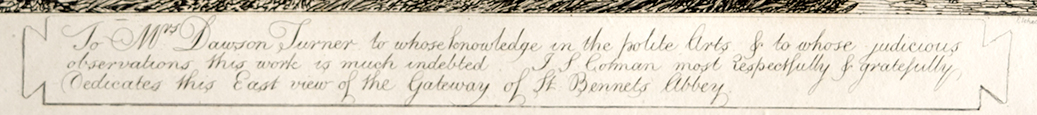 To Mrs Dawson Turner to whose knowledge in the polite Arts & to whose judicious
observations this work is much indebted J S Cotman most respectfully & gratefully
Dedicates this East view of the Gateway of St Bennets Abbey